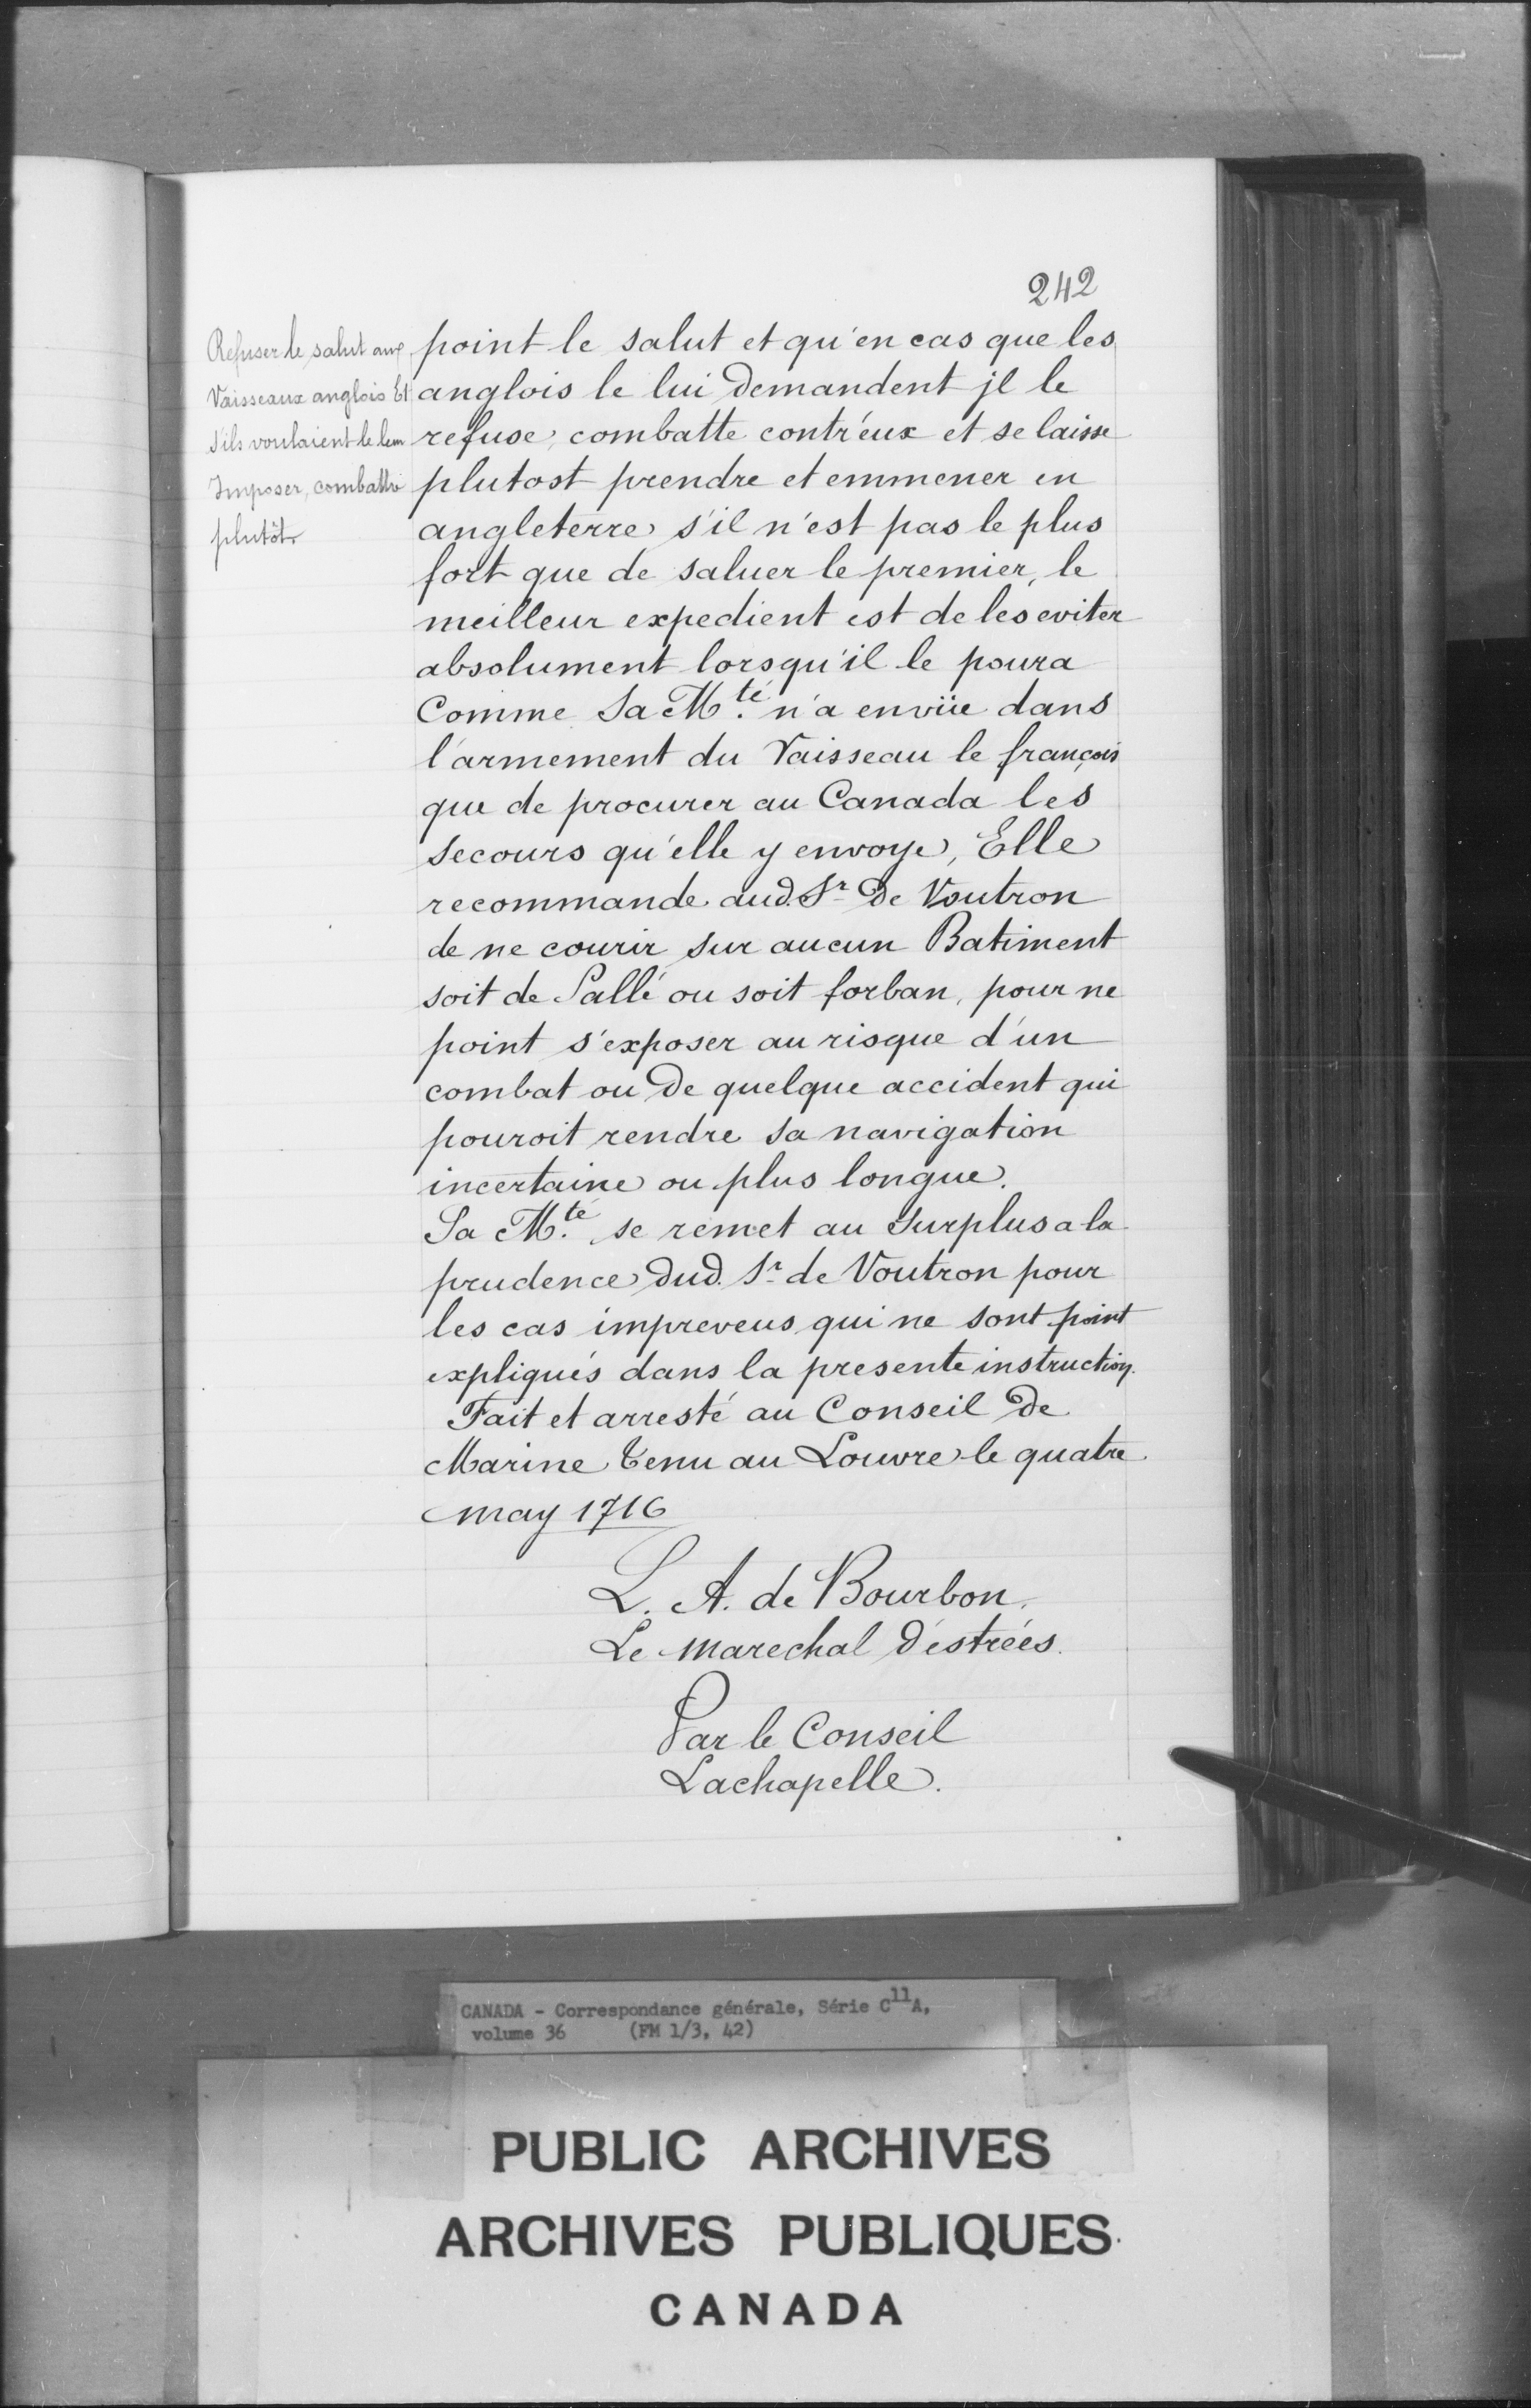 242
Refuser le salut aux
Vaisseaux anglois Et
s'ils voulaient le leur
Imposer, combattre
plutôt
point le salut et qu'en cas que les
anglois le lui demandent jl le
refuse, combatte contr'eux et se laisse
plutost prendre et emmener en
angleterre s'il n'est pas le plus
fort que de saluer le premier, le
meilleur expedient est de les eviter
absolument lorsqu'il le poura
Comme Sa M.té n'a enviie dans
l'armement du Vaisseau le françois
que de procurer au Canada les
secours qu'elle y envoye, Elle
recommande aud. Sr de Voutron
de ne courir sur aucun Batiment
soit de Sallé ou soit forban, pour ne
point s'exposer au risque d'un
combat ou de quelque accident qui
pouroit rendre sa navigation
incertaine ou plus longue.
Sa M.té se remet au surplus a la
prudence dud. Sr de Voutron pour
les cas impreveus qui ne sont point
expliqués dans la presente instruction.
Fait et arresté au Conseil de
Marine tenu au Louvre le quatre
may 1716
L. A. de Bourbon.
Le marechal d'éstrées.
Par le Conseil
Lachapelle.
CANADA - Correspondance générale, Série C11A,
volume 36 (FM 1/3, 42)
PUBLIC ARCHIVES
ARCHIVES PUBLIQUES
CANADA